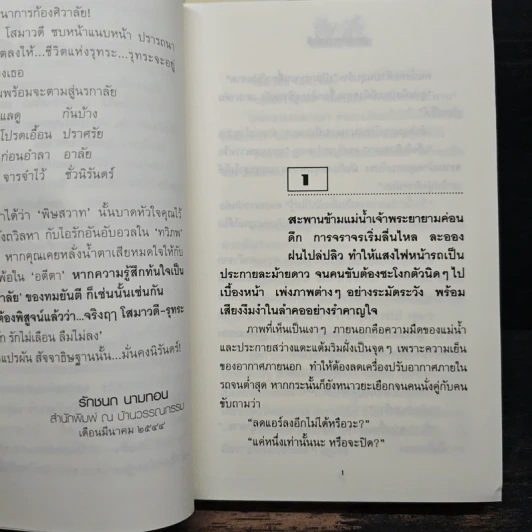 นาการก้องศิวาลัย!
โสมาวดี ซบหน้าแนบหน้า ปรารถนา
ตลงให้...ชีวิตแห่งรุทระ...รุทระจะอยู่
งเธอ
มพร้อมจะตามสู่นรกาลัย
แลดู กันบ้าง
โปรดเอื้อน ปราศรัย
ก่อนอำลา อาลัย
จารจำไว้ ชั่วนิรันดร์
าได้ว่า ‘พิษสวาท’ นั้นบาดหัวใจคุณไว้
ังถวิลหา กับไอรักอันอับอวลใน ‘ทวิภพ’
หากคุณเคยหลั่งน้ำตาเสียหมดใจให้กับ
พ้อใน ‘อตีตา’ หากความรู้สึกทันใจเป็น
าลัย’ ของทมยันตี ก็เช่นนั้นเช่นกัน
ต้องพิสูจน์แล้วว่า...จริงฤๅ โสมาวดี-รุทระ
รักไม่เลือน ลืมไม่ลง’
แปรผัน สัจจาอิษฐานนั้น...มั่นคงนิรันดร์!
รักชนก นามทอน
สำนักพิมพ์ ณ บ้านวรรณกรรม
เดือนมีนาคม ๒๕๔๔
1
สะพานข้ามแม่น้ำเจ้าพระยายามค่อน
ดึก การจราจรเริ่มลื่นไหล ละออง
ฝนไปล่ปลิว ทำให้แสงไฟหน้ารถเป็น
ประกายละม้ายดาว จนคนขับต้องชะโงกตัวนิดๆ ไป
เบื้องหน้า เพ่งภาพต่างๆ อย่างระมัดระวัง พร้อม
เสียงงึมงำในลำคออย่างรำคาญใจ
ภาพที่เห็นเป็นเงาๆ ภายนอกคือความมืดของแม่น้ำ
และประกายสว่างแตะแต้มริมฝั่งเป็นจุดๆ เพราะความเย็น
ของอากาศภายนอก ทำให้ต้องลดเครื่องปรับอากาศภายใน
รถจนต่ำสุด หากกระนั้นก็ยังหนาวยะเยือกจนคนนั่งคู่กับคน
ขับถามว่า
“ลดแอร์ลงอีกไม่ได้หรือวะ?”
“แค่หนึ่งเท่านั้นนะ หรือจะปิด?”
1